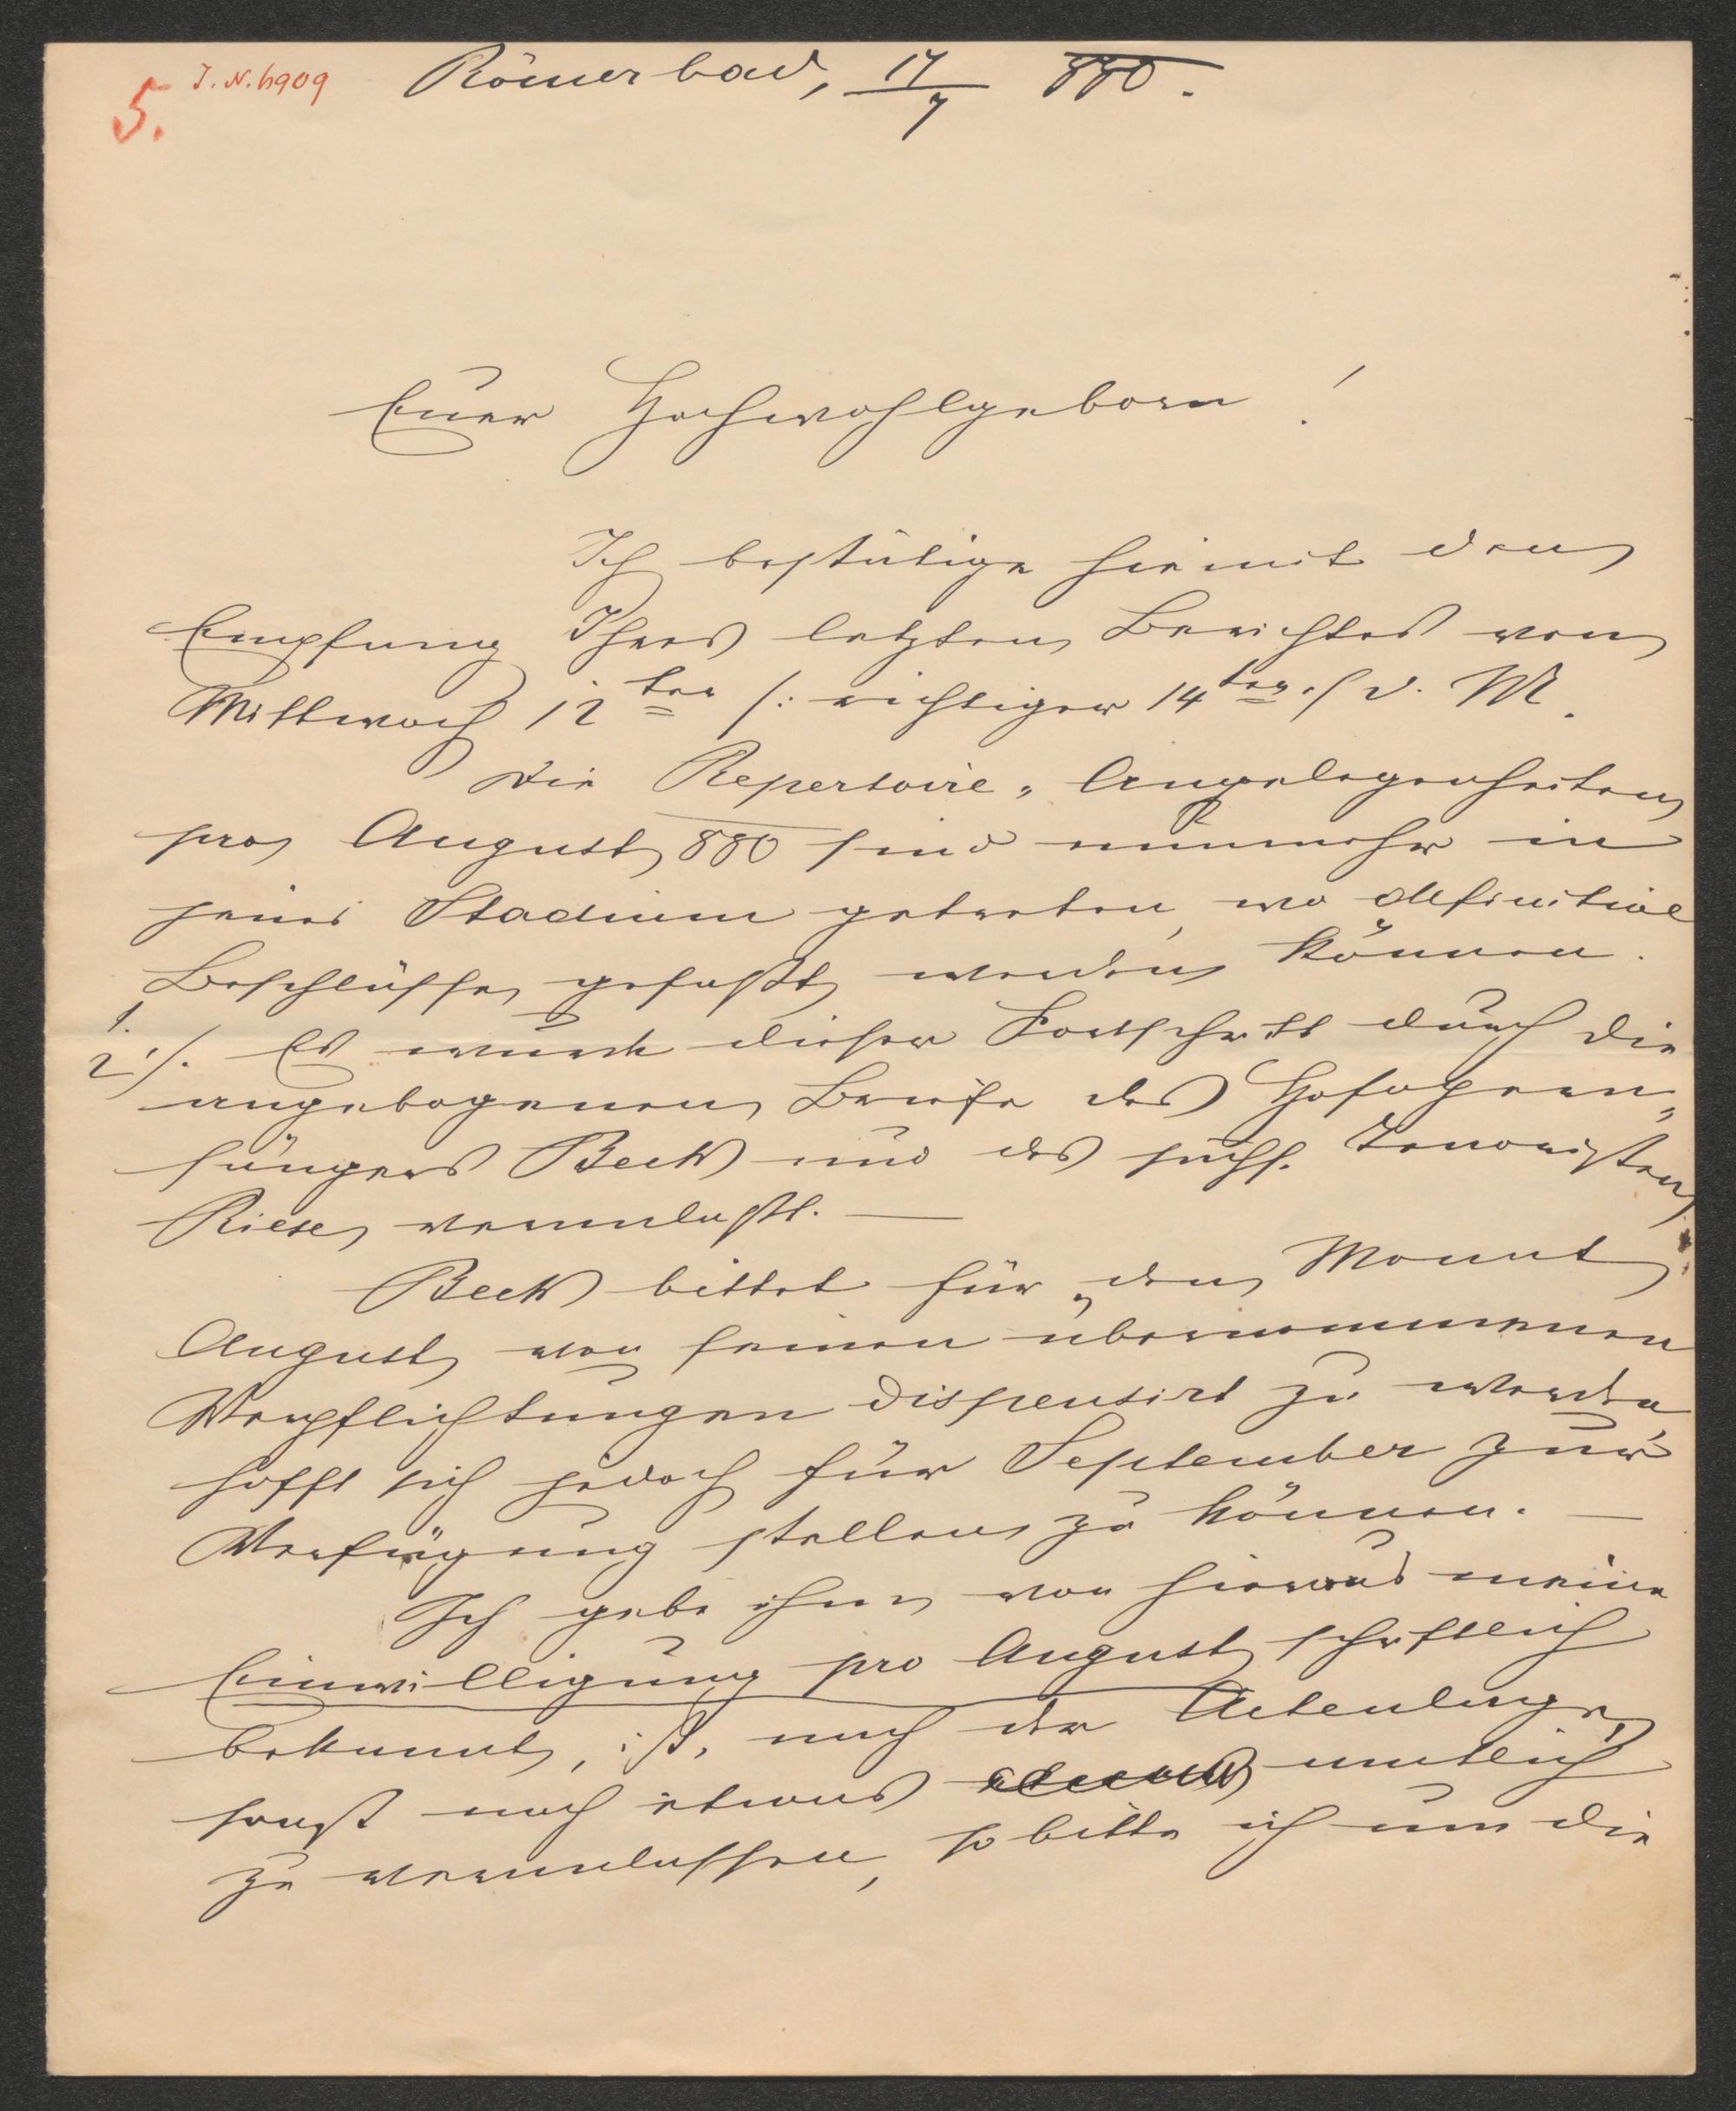 5. J.N. 6909 Römerbad, 17/7 880.
Euer Hochwohlgeborn!
Ich bestätige hiemit den
Empfang Ihres letzten Berichtes von
Mittwoch 12ten /: richtiger 14ten :/ d. M.
Die Repertoire-Angelegenheiten
pro August 880 sind nunmehr in
jenes Stadium getreten, wo definitive
Beschlüsse gefaßt werden können.
1.
2 ./. Es wurde dieser Fortschritt durch die
angebogenen Briefe des Hofopern-
sängers Beck und des sächs. Tenoristen
Riese veranlaßt. —
Beck bittet für den Monat
August von seinen übernommenen
Verpflichtungen dispensirt zu werden
hofft sich jedoch für September zur
Verfügung stellen zu können. —
Ich gebe ihm von hieraus meine
Einwilligung pro August schriftlich
bekannt, ist, nach der Actenlage,
sonst noch etwas amtlich
zu veranlassen, so bitte ich um die